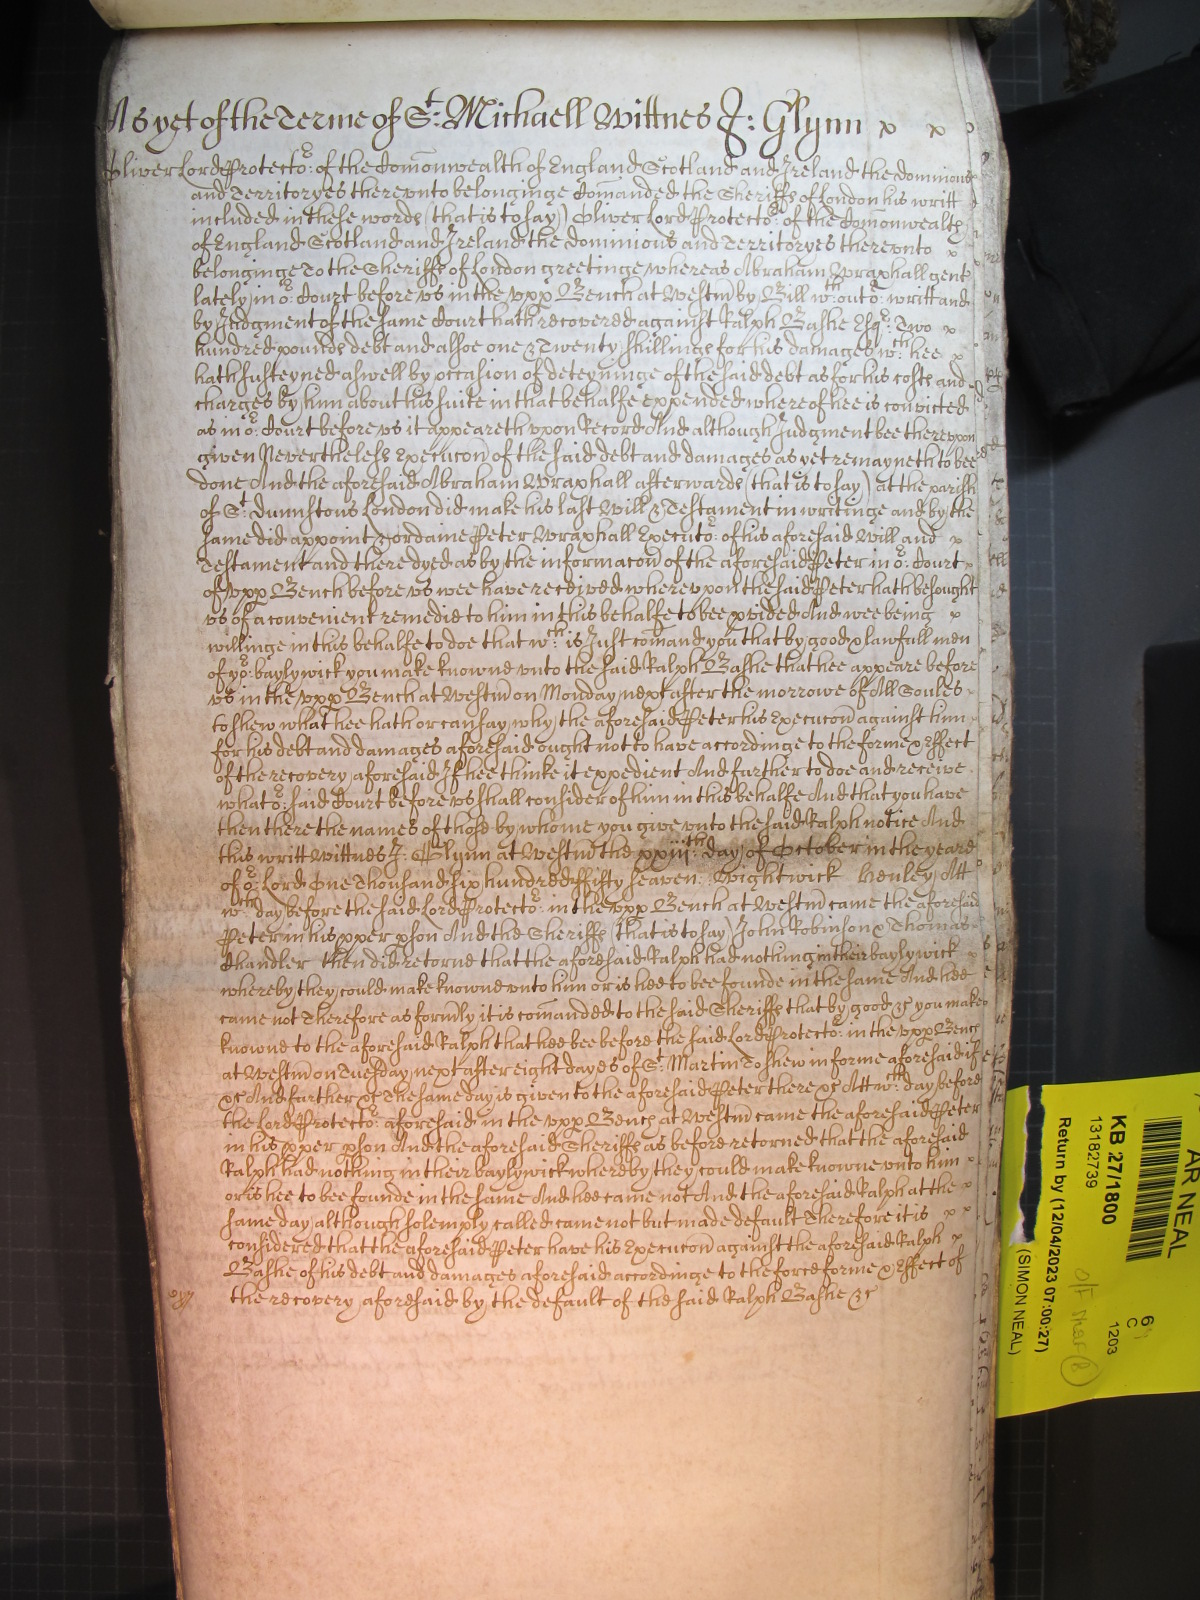 As yet of the Terme of St: Michaell Wittnes J: Glynn x x
Oliver Lord Protector: of the Com̄onwealth of England Scotland and Ireland the dominions
and Territoryes therevnto belonginge Com̄anded the Sheriffs of London his writt
included in these words (that is to say) Oliver Lord Protector: of the Com̄onwealth
of England Scotland and Ireland the dominions and Territoryes therevnto x
belonginge To the Sheriffs of London greetinge whereas Abraham Wraxhall gent
lately in or: Court before vs in the vpp Bench at Westm̄ by Bill wthout or: writt and
by Judgment of the same Court hath recovered against Ralph Bashe Esqr: Two x
hundred pounds debt and alsoe one & Twenty shillings for his damages wch: hee x
hath susteyned aswell by occasion of deteyninge of the said debt as for his costs and
charges by him about his suite in that behalfe expended whereof hee is convicted
as in or: Court before vs it appeareth vpon Record And although Judgment bee therevpon
given Nevertheless Execucon̄ of the said debt and damages as yet remayneth to bee
done And the aforesaid Abraham Wraxhall afterwards (that is to say) at the parish
of St: Dunnstons London did make his last Will & Testament in writinge and by the
same did appoint & ordaine Peter Wraxhall Executor: of his aforesaid Will and x
Testament and there dyed as by the informacon̄ of the aforesaid Peter in or: Court
of vpp Bench before vs wee have received wherevpon the said Peter hath besought
vs of a convenient remedie to him in this behalfe to bee pvided And wee being x
willinge in this behalfe to doe that wch: is Just com̄and you that by good & lawfull men
of yor: baylywick you make knowne vnto the said Ralph Bashe that hee appeare before
vs in the vpp Bench at Westm̄ on Monday next after the morrowe of All Soules
to shew what hee hath or can say why the aforesaid Peter his Execucon̄ against him
for his debt and damages aforesaid ought not to have accordinge to the forme & Effect
of the recovery aforesaid If hee thinke it expedient And further to doe and receive
what or: said Court before vs shall consider of him in this behalfe And that you have
then there the names of those by whome you give vnto the said Ralph notice And
this writt Wittnes J: Glynn at Westm̄ the xxiiith: day of October in the yeare
of or: Lord One Thousand six hundred ffifty seaven: Wightwick Henley Att
wch day before the said Lord Protector: in the vpp Bench at Westm̄ came the aforesaid
Peter in his pper pson And the Sheriffs (that is to say) John Robinson & Thomas
Chandler then did retorne that the aforesaid Ralph had nothing in their baylywick
whereby they could make knowne vnto him or is hee to bee founde in the same And hee
came not Therefore as formly it is com̄anded to the said Sheriffs that by good &c you make
knowne to the aforesaid Ralph that hee bee before the said Lord Protector: in the vpp Bench
at Westm̄ on Tuesday next after eight dayes of St: Martin To shew in forme aforesaid if
&c And further &c The same day is given to the aforesaid Peter there &c Att wch: day before
the Lord Protector: aforesaid in the vpp Bench at Westm̄ came the aforesaid Peter
in his pper pson And the aforesaid Sheriffs as before retorned that the aforesaid
Ralph had nothing in their baylywick whereby they could make knowne vnto him
or is hee to bee founde in the same And hee came not And the aforesaid Ralph at the
same day although solemply called came not but made default Therefore it is x x
considered that the aforesaid Peter have his Execucon̄ against the aforesaid Ralph x
Bashe of his debt and damages aforesaid accordinge to the force forme & Effect of
the recovery aforesaid by the default of the said Ralph Bashe &c
AR NEAL
KB 27/1800
13182739
Return by (12/04/2023 07:00:27)
(SIMON NEAL)
C
1203